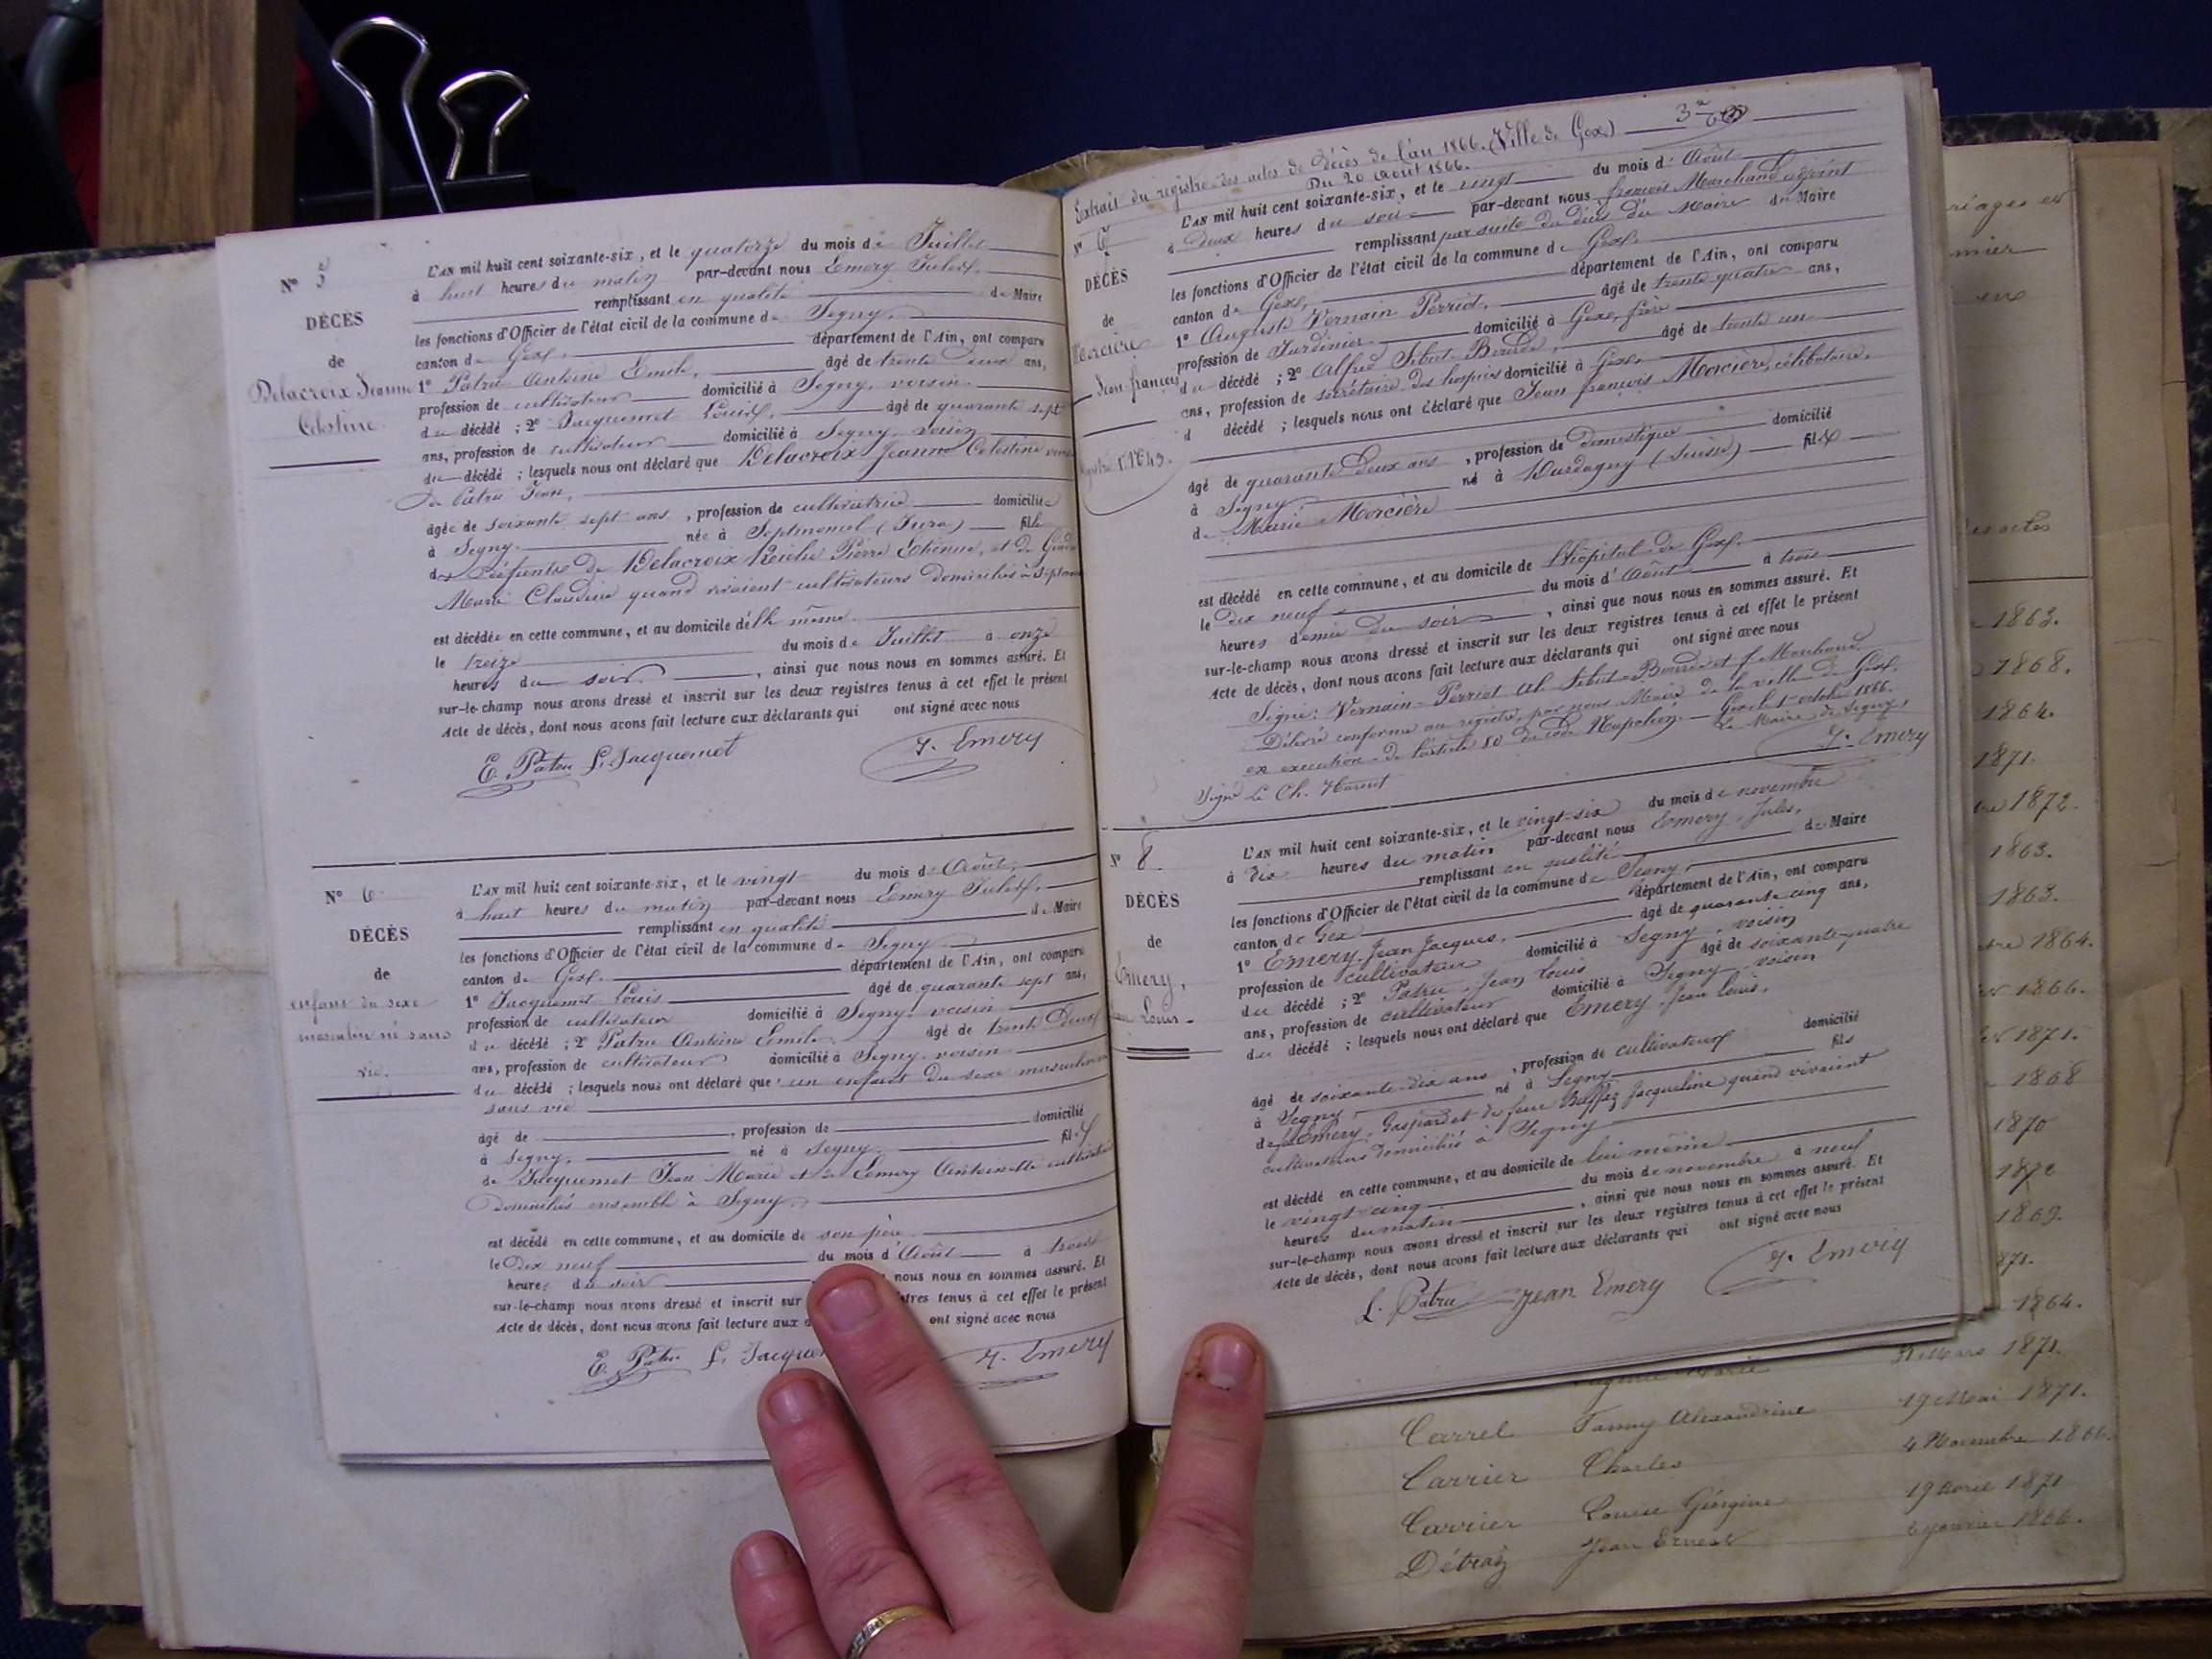 N° 5
DÉCÈS
de
Delacroix Jeanne
Célestine
L'AN mil huit cent soixante-six, et le quatorze du mois de Juillet
à huit heures du matin par-devant nous Emery Jules,
remplissant en qualité de Maire
les fonctions d'Officier de l'état civil de la commune de Segny,
canton de Gex, département de l'Ain, ont comparu
1° Patru Antoine Emile, âgé de trente deux ans,
profession de cultivateur domicilié à Segny, voisin
du décédé ; 2° Jacquemet Louis, âgé de quarante sept
ans, profession de cultivateur domicilié à Segny voisin
du décédé ; lesquels nous ont déclaré que Delacroix Jeanne Célestine
de Patru Jean,
âgée de soixante sept ans, profession de cultivatrice domiciliée
à Segny née à Septmoncel (Jura) fille
de Delacroix Pierre Etienne, et de
Marie Claudine quand vivaient cultivateurs domiciliés à
est décédée en cette commune, et au domicile d'elle même
le treize du mois de Juillet à onze
heures du soir, ainsi que nous nous en sommes assuré. Et
sur-le-champ nous avons dressé et inscrit sur les deux registres tenus à cet effet le présent
Acte de décès, dont nous avons fait lecture aux déclarants qui ont signé avec nous
E. Patru L. Jacquemet J. Emery
N° 6
DÉCÈS
de
enfant du sexe
masculin né sans
vie.
L'AN mil huit cent soixante-six, et le vingt du mois d'Août,
à huit heures du matin par-devant nous Emery Jules,
remplissant en qualité de Maire
les fonctions d'Officier de l'état civil de la commune de Segny
canton de Gex département de l'Ain, ont comparu
1° Jacquemet Louis âgé de quarante sept ans,
profession de cultivateur domicilié à Segny voisin
du décédé ; 2° Patru Antoine Emile, âgé de trente deux
ans, profession de cultivateur domicilié à Segny voisin
du décédé ; lesquels nous ont déclaré que un enfant du sexe masculin
sans vie
âgé de , profession de domicilié
à Segny, né à Segny fils
de Jacquemet Jean Marie et de Emery Antoinette
domiciliés ensemble à Segny,
est décédé en cette commune, et au domicile de son père
le dix neuf du mois d'Août à trois
heures du soir nous nous en sommes assuré. Et
sur-le-champ nous avons dressé et inscrit sur tenus à cet effet le présent
Acte de décès, dont nous avons fait lecture aux ont signé avec nous
E. Patru L. J. Emery
Extrait du registre des actes de décès de l'an 1866. (Ville de Gex)
Du 20 août 1866.
N° 7
DÉCÈS
de
Mercière
Jean françois
L'AN mil huit cent soixante-six, et le vingt du mois d'Août
à deux heures du soir par-devant nous françois Marchand adjoint
remplissant par suite du décès du Maire du Maire
les fonctions d'Officier de l'état civil de la commune de Gex
canton de Gex, département de l'Ain, ont comparu
1° Auguste Vernain Perriot, âgé de trente quatre ans,
profession de Jardinier domicilié à Gex, frère
du décédé ; 2° Alfred Sibut-Bourde, âgé de trente un
ans, profession de secrétaire des hospices domicilié à Gex,
d décédé ; lesquels nous ont déclaré que Jean françois Mercière, célibataire,
âgé de quarante deux ans, profession de domestique domicilié
à Segny, né à Dardagny (Suisse) fils
de Marie Mercière
est décédé en cette commune, et au domicile de l'hôpital de Gex
le dix neuf du mois d'Août à trois
heures demie du soir, ainsi que nous nous en sommes assuré. Et
sur-le-champ nous avons dressé et inscrit sur les deux registres tenus à cet effet le présent
Acte de décès, dont nous avons fait lecture aux déclarants qui ont signé avec nous
Signé : Vernain-Perriot Al. Sibut-Bourde et f. Marchand
Délivré conforme au registre, par nous Maire de la ville de Gex,
en exécution de l'article 80 du code Napoléon. Gex le 1er octobre 1866.
Le Maire de Segny,
J. Emery
Signé Ch.
N° 8
DÉCÈS
de
Emery,
Louis
L'AN mil huit cent soixante-six, et le vingt-six du mois de novembre
à dix heures du matin par-devant nous Emery, Jules,
remplissant en qualité de Maire
les fonctions d'Officier de l'état civil de la commune de Segny,
canton de Gex département de l'Ain, ont comparu
1° Emery, Jean Jacques, âgé de quarante cinq ans,
profession de cultivateur domicilié à Segny, voisin
du décédé ; 2° Patru, Jean Louis âgé de soixante-quatre
ans, profession de cultivateur domicilié à Segny voisin
du décédé ; lesquels nous ont déclaré que Emery, Jean Louis,
âgé de soixante-dix ans, profession de cultivateur domicilié
à Segny, né à Segny fils
de feu Emery, Gaspard et de feue Jacqueline quand vivaient
cultivateurs domiciliés à Segny
est décédé en cette commune, et au domicile de lui même
le vingt-cinq du mois de novembre à neuf
heures du matin, ainsi que nous nous en sommes assuré. Et
sur-le-champ nous avons dressé et inscrit sur les deux registres tenus à cet effet le présent
Acte de décès, dont nous avons fait lecture aux déclarants qui ont signé avec nous
L. Patru Jean Emery J. Emery
1863.
1868.
1864.
1871.
1872.
1863.
1863.
1864.
1866.
1871.
1868
1870
1872
1869.
871.
1864.
Mars 1871.
Carrel Fanny Alexandrine 19 Mai 1871.
Carrier Charles 4 Novembre 1866.
Carrier Louise Géorgine 19 avril 1871
Détraz Jean Ernest janvier 1866.